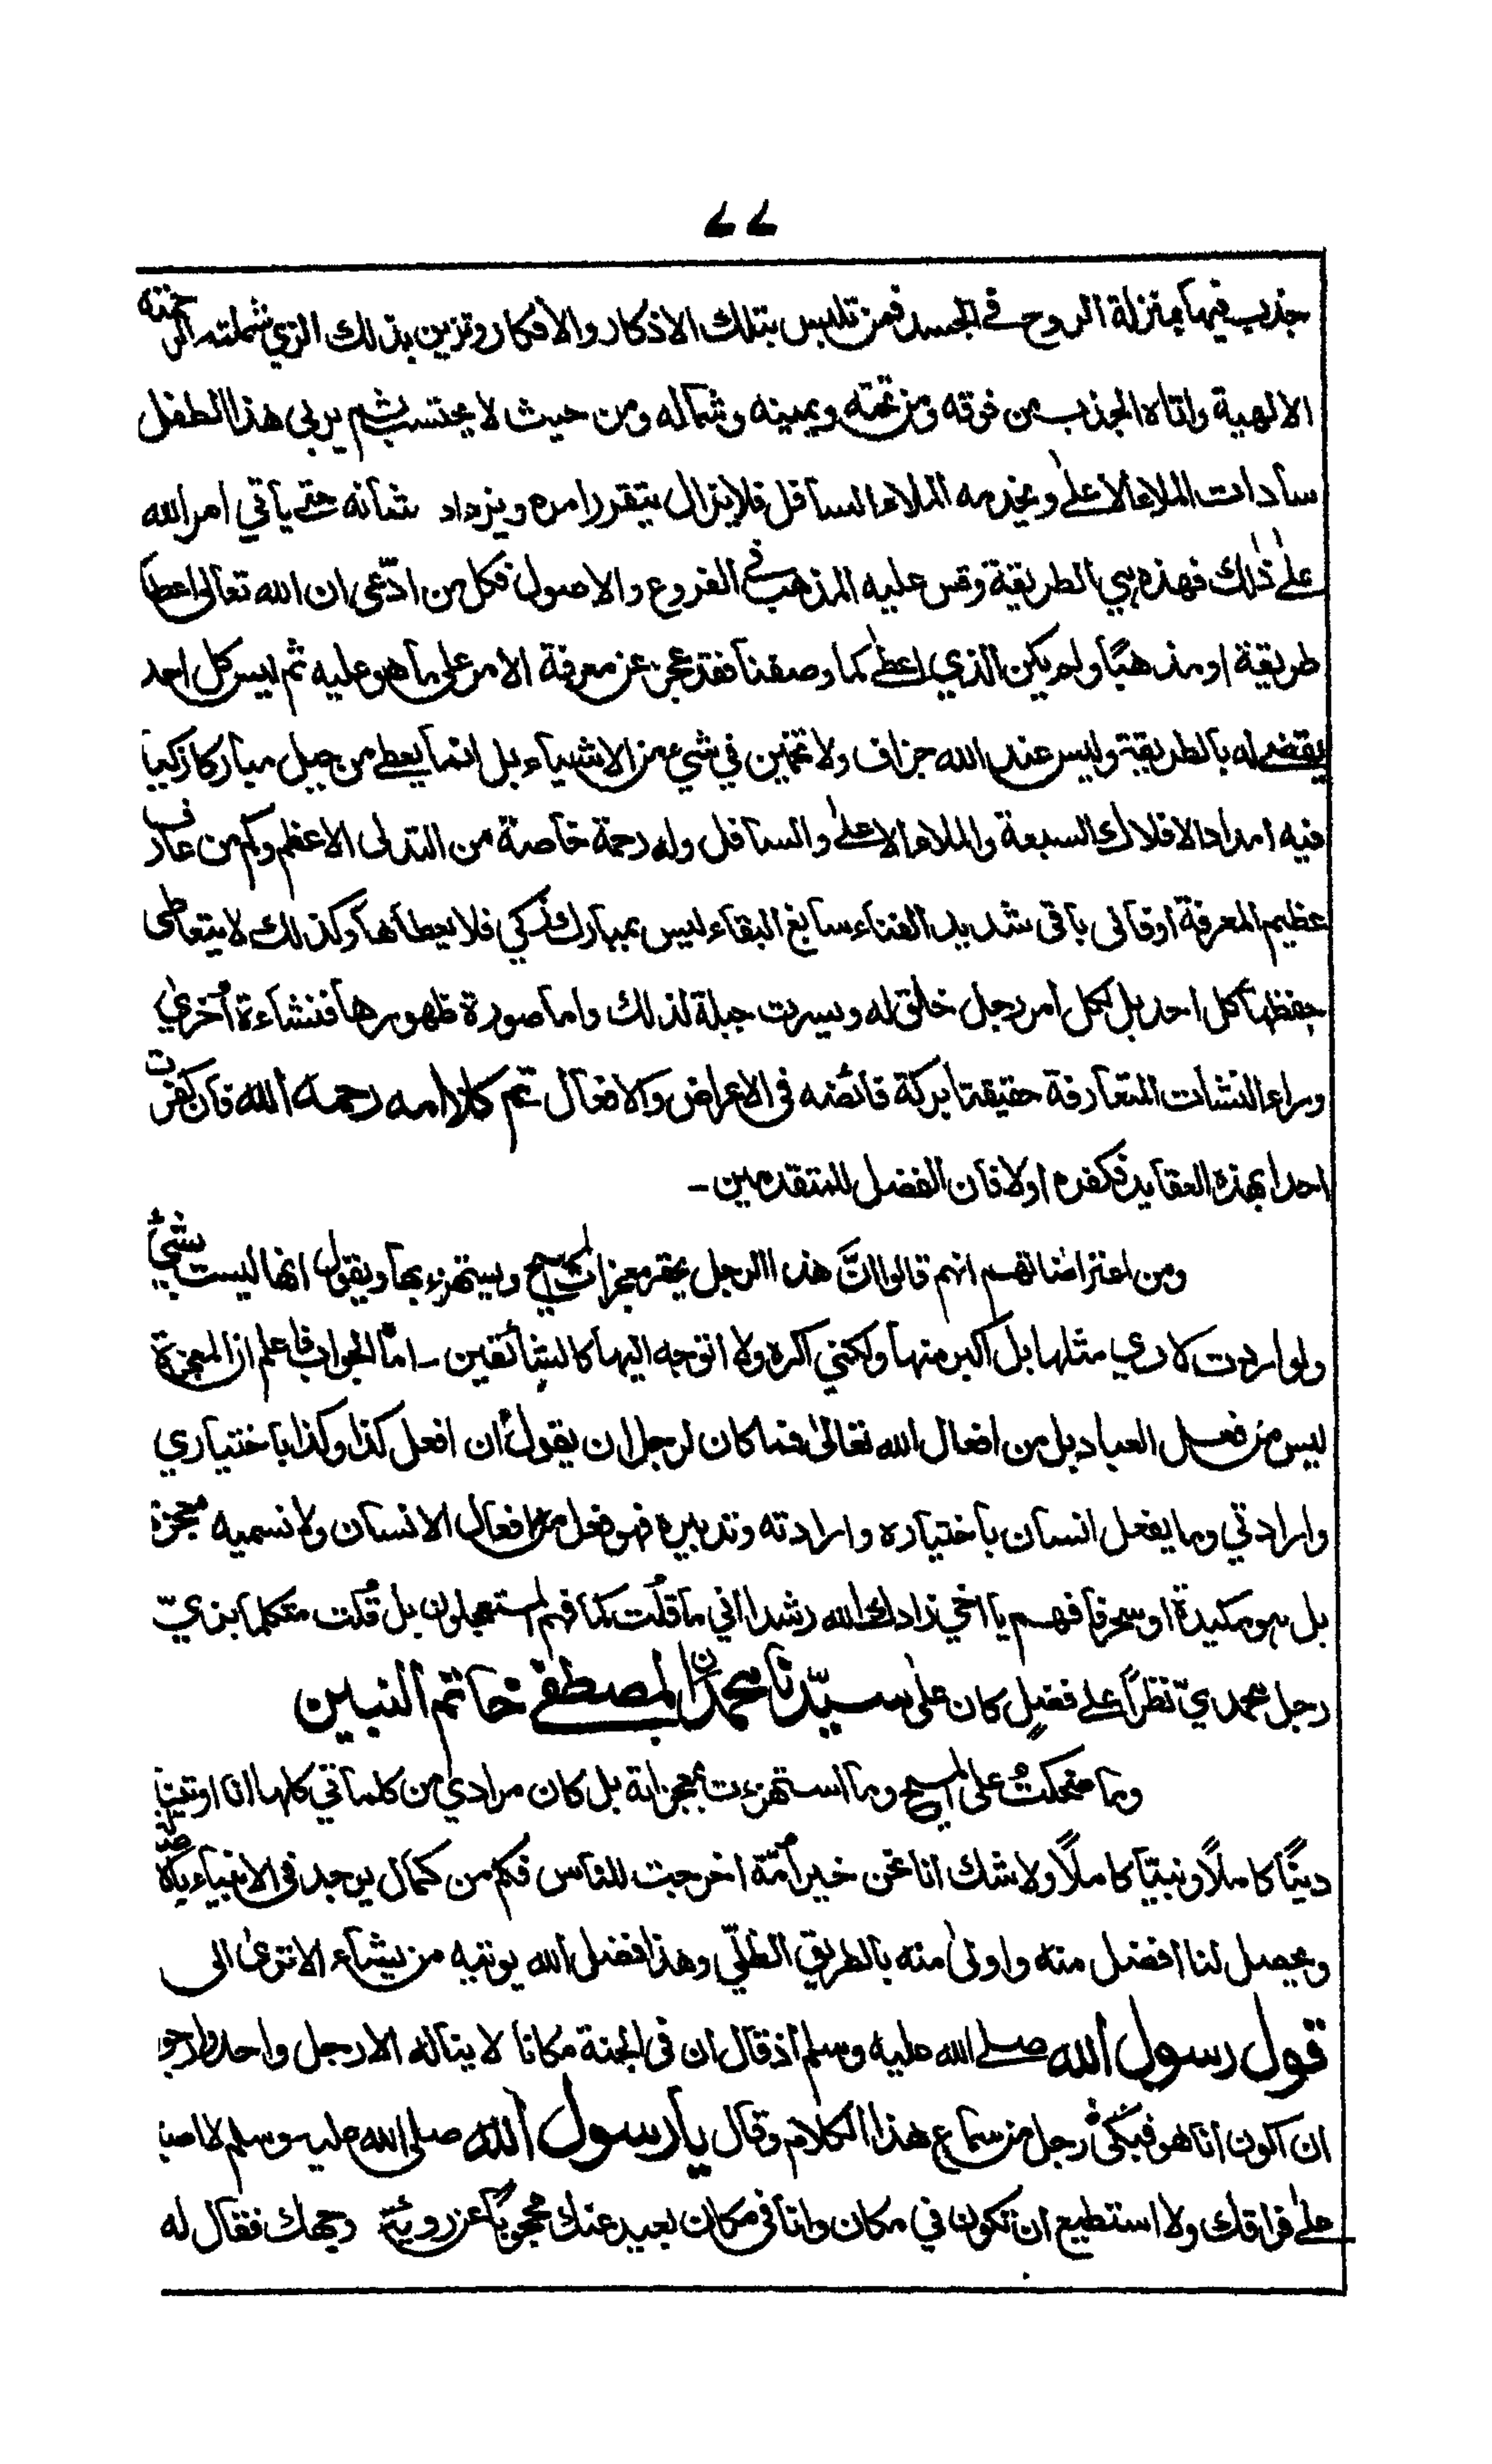 ۷۷
جذب فيها بمنزلة الروح فى الجسد فمن تلبس بتلك الاذكار والافكار وتزين بذلك الزي شملته الرحمته
الالهية واتاه الجذب من فوقه ومن تحته ويمينه وشماله ومن حيث لا يحتسب ثم يربى هذا الطفل
سادات الملاء الاعلےٰ ويخدمه الملاء السافل فلا يزال يتقرر امره ويزداد شانه حتے ياتي امر الله
علےٰ ذٰلك فهذه هي الطريقة وقس عليه المذهب فى الفروع والاصول فكل من ادّعى ان الله تعالى اعطا
طريقة او مذهبًا ولم يكن الذي اعطےٰ كما وصفنا فقد عجز عن معرفة الامر على ما هو عليه ثم ليس كل احد
يقضے له بالطريقة وليس عند الله جزاف ولا تخمين في شيء من الاشياء بل انما يعطے من جبل مباركا زكيا
فيه امداد الافلاك السبعة والملاء الاعلےٰ والسافل وله رحمة خاصة من التدلى الاعظم وكم من عارف
عظيم المعرفة او فانى باقى شديد الفناء سابغ البقاء ليس بمبارك زكي فلا يعطاها وكذلك لا يتعاطى
حفظها كل احد بل لكل امر رجل خلق له ويسرت جبلة لذلك واما صورة ظهورها فنشاءة أخرٰي
وراء النشات المتعارفة حقيقتها بركة فائضه فى الاعراض والافعال تم كلامه رحمه الله فان كفرت
احدا بهذه العقايد فكفره اولا فان الفضل للمتقدمين-
ومن اعتراضاتهم انهم قالوا انّ هذا الرجل يحقر معجزات المسيح ويستهزء بها ويقول انها ليست بشيء
ولو اردت لاري مثلها بل اكبر منها ولكني اكره ولا اتوجه اليها كالشائقين - اما الجواب فاعلم ان المعجزة
ليس من فعل العباد بل من افعال الله تعالىٰ فما كان لرجل ان يقول ان افعل كذا وكذا باختياري
وارادتي وما يفعل انسان باختياره وارادته وتدبيره فهو فعل من افعال الانسان ولا نسميه معجزة
بل هو مكيدة او سحر فافهم يا اخي زادك الله رشدا اني ما قلت كما فهم المستعجلون بل قُلت متكلما بزيّ
رجل محمديّ نظرًا علے فضلٍ كان علیٰ سيّدنا محمدن المصطفے خاتم النبيين
وما ضحكتُ على المسيح وما استهزءت بمعجزاته بل كان مرادي من كلماتي كلها انا اوتينا
دينًا كاملًا ونبيّا كاملًا ولا شك انا نحن خير اُمّة اخرجت للناس فكم من كمال يوجد فى الانبياء بالاصالة
ويحصل لنا افضل منه واولىٰ منه بالطريق الظلّي وهذا فضل الله يوتيه من يشاء الا ترىٰ الى
قول رسول الله صلے الله عليه وسلم اذ قال ان فى الجنة مكانا لا يناله الا رجل واحد وارجو
ان اكون انا هو فبكىٰ رجل من سماع هذا الكلام وقال يا رسول الله صلى الله عليه وسلم لا اصبر
علےٰ فراقك ولا استطيع ان تكون في مكان وانا فى مكان بعيد عنك محجوبًا عن روئية وجهك فقال له